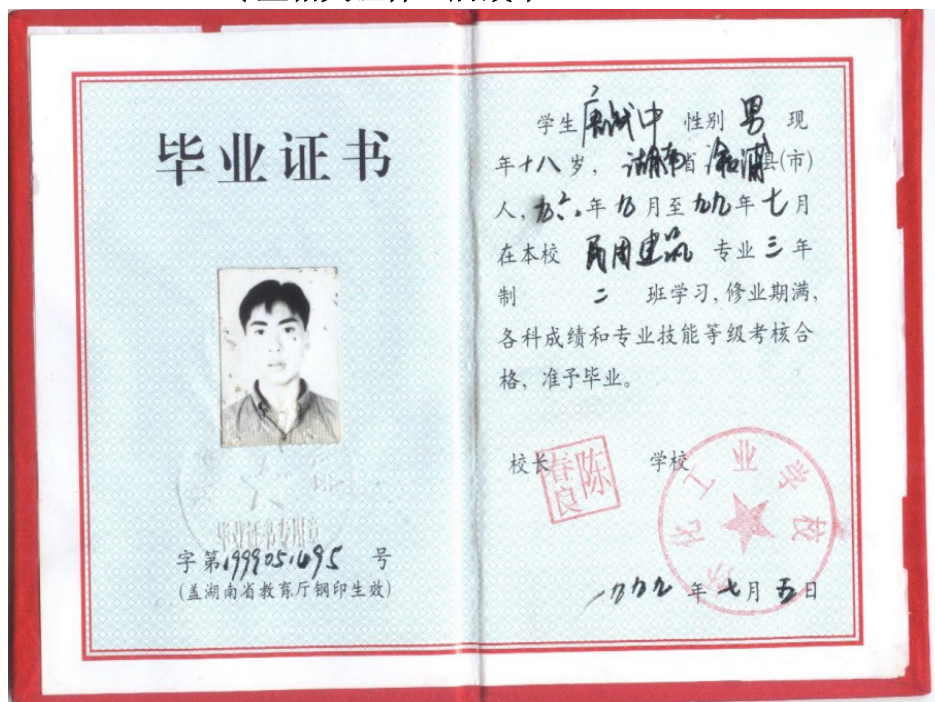 毕业证书
毕业证书专用章
字第1999051495号
(盖湖南省教育厅钢印生效)
学生 唐 中 性别 男 现
年十八岁, 湖南省 溆浦县(市)
人, 九六年 九月至九九年七月
在本校 民用建筑 专业三年
制 二 班学习, 修业期满,
各科成绩和专业技能等级考核合
格, 准予毕业。
校长 陈春良 学校
化工业学校
一九九九年七月五日